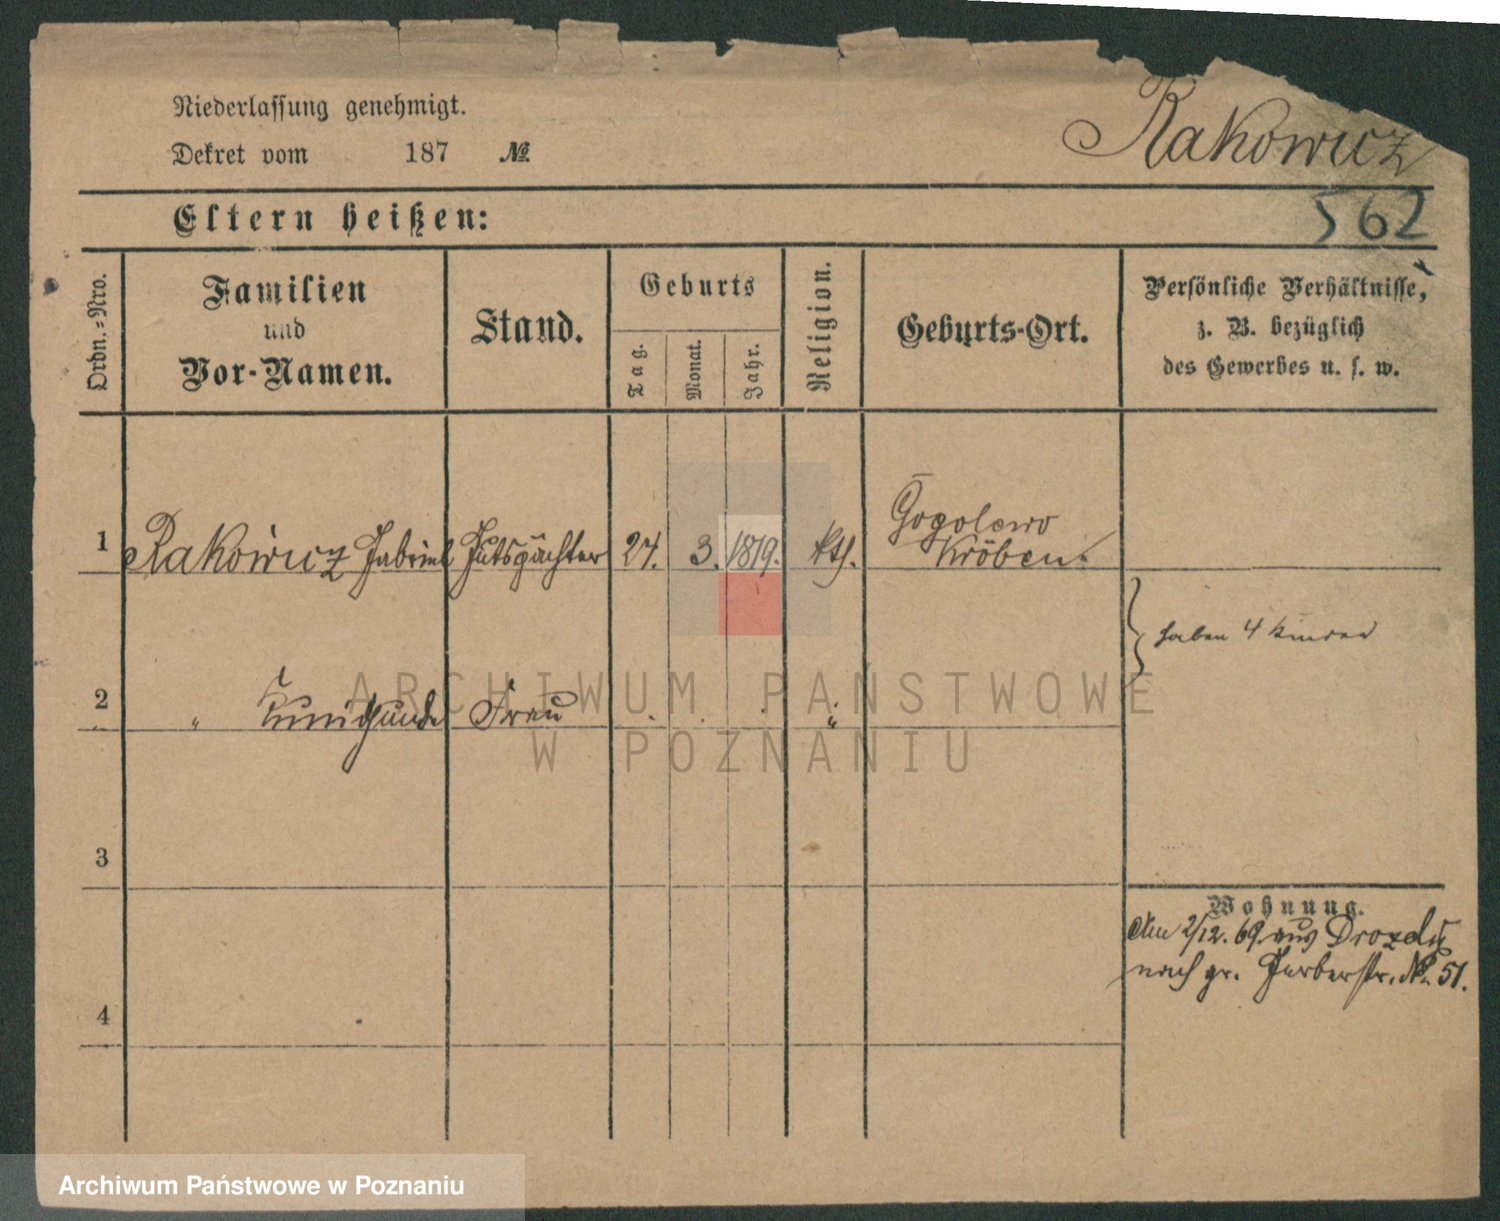 Niederlassung genehmigt.
Rakowicz
Dekret vom 187 №
Eltern heißen:
562
Ordn.-Nro.
Familien
und
Vor-Namen.
Stand.
Geburts
Tag.
Monat.
Jahr.
Religion.
Geburts-Ort.
Persönliche Verhältnisse,
z. B. bezüglich
des Gewerbes u. s. w.
1 Rakowicz Gabriel Gutspächter 24. 3. 1819. kth. Gogolewo
Kröben.
haben 4 Kinder
2 " Kunigunde Frau . . . "
ARCHIWUM PAŃSTWOWE
W POZNANIU
3
Wohnung.
Am 2/12. 69 aus Drozdy
nach gr. Gerberstr. № 51.
4
Archiwum Państwowe w Poznaniu